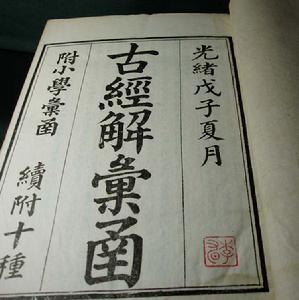 光緒戊子夏月
古經解彙函
附小學彙函
續附十種